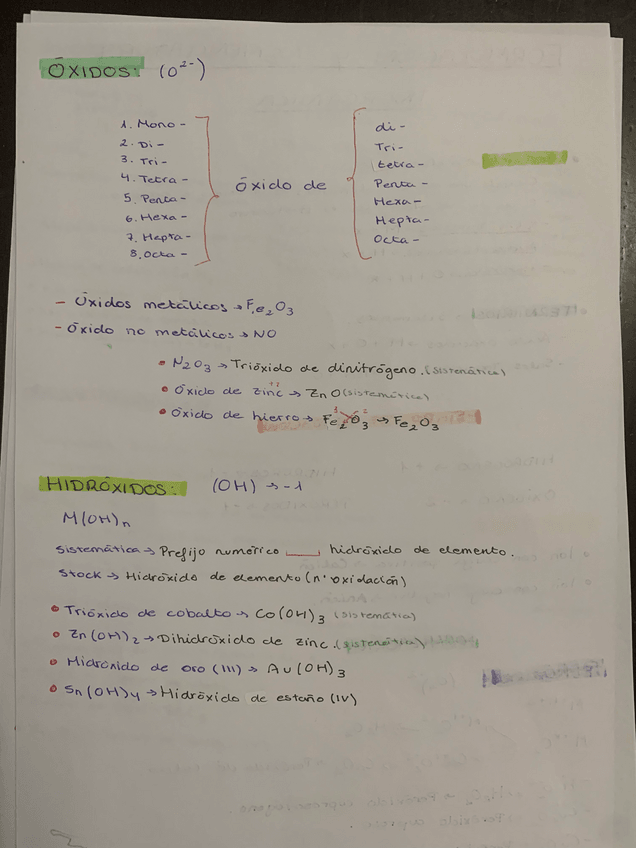 ÓXIDOS: (O²⁻)
1. Mono-
2. Di-
3. Tri-
4. Tetra-
5. Penta-
6. Hexa-
7. Hepta-
8. Octa-
Óxido de
di-
Tri-
tetra-
Penta-
Hexa-
Hepta-
Octa-
- Óxidos metálicos → Fe₂O₃
- Óxido no metálicos → NO
• N₂O₃ → Trióxido de dinitrógeno. (sistemática)
• Óxido de zinc → ZnO (sistemática)
• Óxido de hierro → Fe₂O₃ → Fe₂O₃
HIDRÓXIDOS: (OH) → -1
M(OH)n
Sistemática → Prefijo numérico hidróxido de elemento.
Stock → Hidróxido de elemento (nº oxidación)
• Trióxido de cobalto → Co(OH)₃ (sistemática)
• Zn(OH)₂ → Dihidróxido de zinc. (sistemática)
• Hidróxido de oro (III) → Au(OH)₃
• Sn(OH)₄ → Hidróxido de estaño (IV)